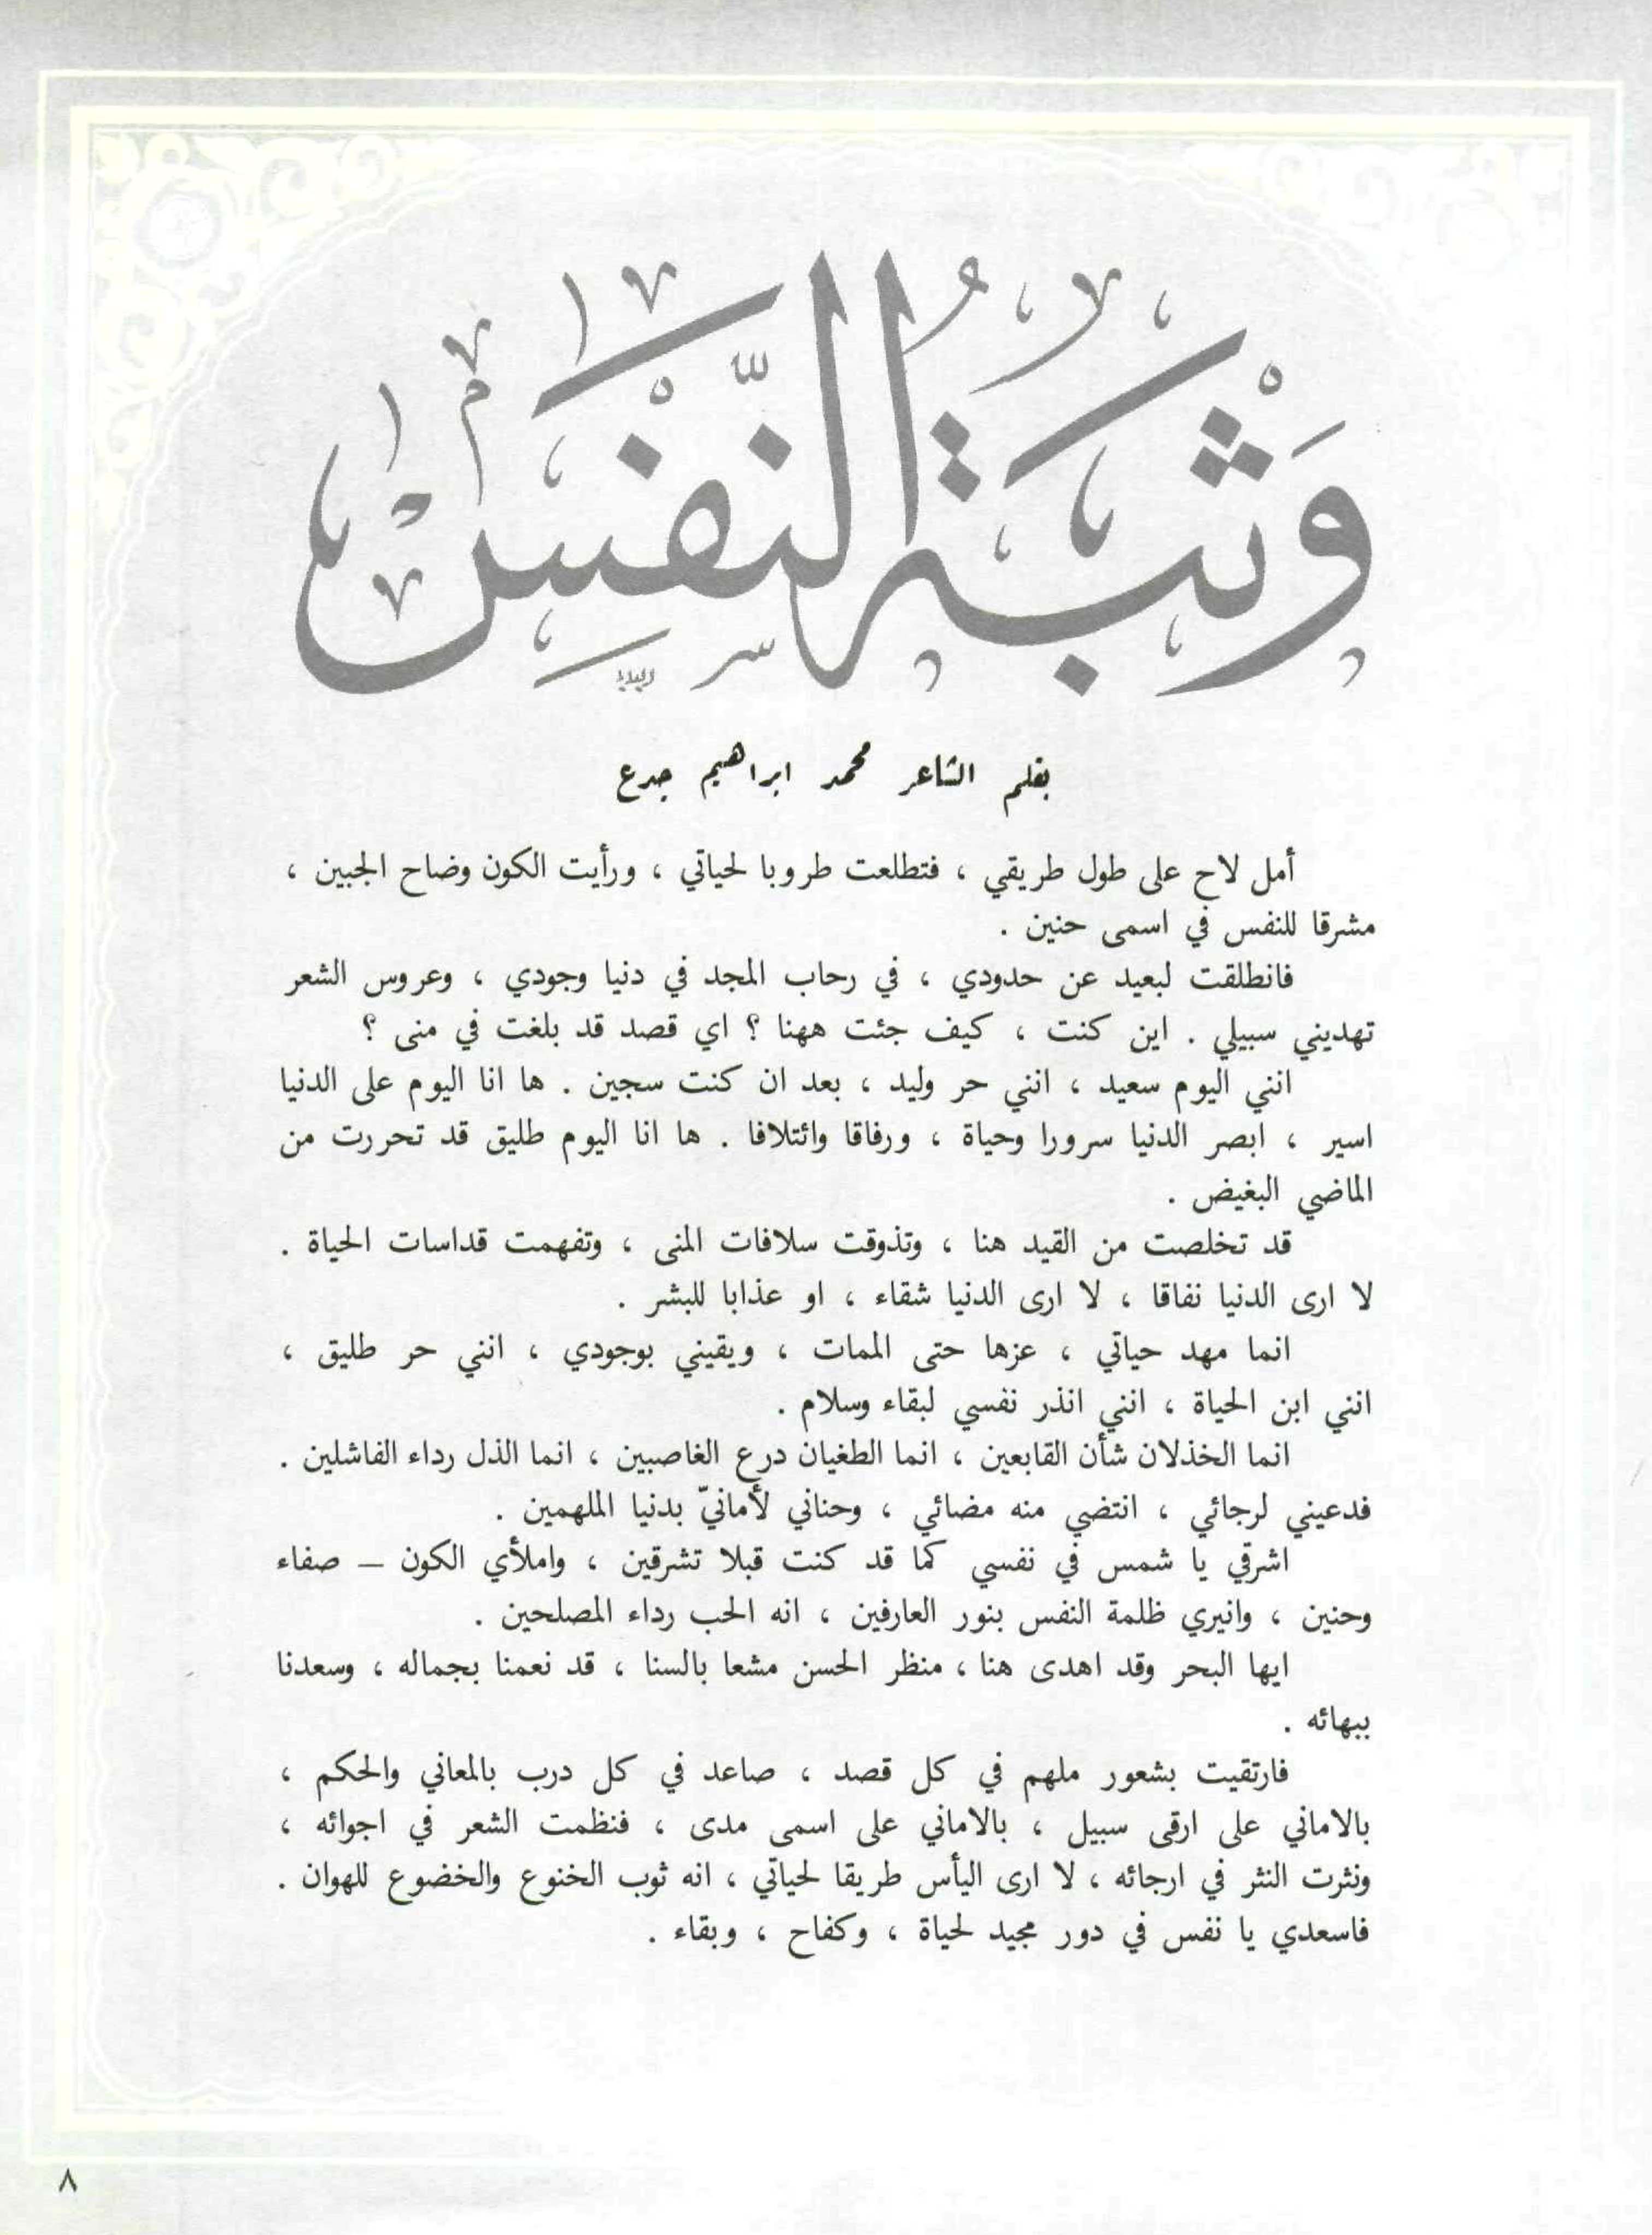 وَثْبَةُ النَّفْسِ
بقلم الشاعر محمد ابراهيم جدع
أمل لاح على طول طريقي ، فتطلعت طروبا لحياتي ، ورأيت الكون وضاح الجبين ،
مشرقا للنفس في اسمى حنين .
فانطلقت لبعيد عن حدودي ، في رحاب المجد في دنيا وجودي ، وعروس الشعر
تهديني سبيلي . اين كنت ، كيف جئت ههنا ؟ اي قصد قد بلغت في منى ؟
انني اليوم سعيد ، انني حر وليد ، بعد ان كنت سجين . ها انا اليوم على الدنيا
اسير ، ابصر الدنيا سرورا وحياة ، ورفاقا وائتلافا . ها انا اليوم طليق قد تحررت من
الماضي البغيض .
قد تخلصت من القيد هنا ، وتذوقت سلافات المنى ، وتفهمت قداسات الحياة .
لا ارى الدنيا نفاقا ، لا ارى الدنيا شقاء ، او عذابا للبشر .
انما مهد حياتي ، عزها حتى الممات ، ويقيني بوجودي ، انني حر طليق ،
انني ابن الحياة ، انني انذر نفسي لبقاء وسلام .
انما الخذلان شأن القابعين ، انما الطغيان درع الغاصبين ، انما الذل رداء الفاشلين .
فدعيني لرجائي ، انتضي منه مضائي ، وحناني لأمانيّ بدنيا الملهمين .
اشرقي يا شمس في نفسي كما قد كنت قبلا تشرقين ، واملأي الكون – صفاء
وحنين ، وانيري ظلمة النفس بنور العارفين ، انه الحب رداء المصلحين .
ايها البحر وقد اهدى هنا ، منظر الحسن مشعا بالسنا ، قد نعمنا بجماله ، وسعدنا
ببهائه .
فارتقيت بشعور ملهم في كل قصد ، صاعد في كل درب بالمعاني والحكم ،
بالاماني على ارقى سبيل ، بالاماني على اسمى مدى ، فنظمت الشعر في اجوائه ،
ونثرت النثر في ارجائه ، لا ارى اليأس طريقا لحياتي ، انه ثوب الخنوع والخضوع للهوان .
فاسعدي يا نفس في دور مجيد لحياة ، وكفاح ، وبقاء .
٨